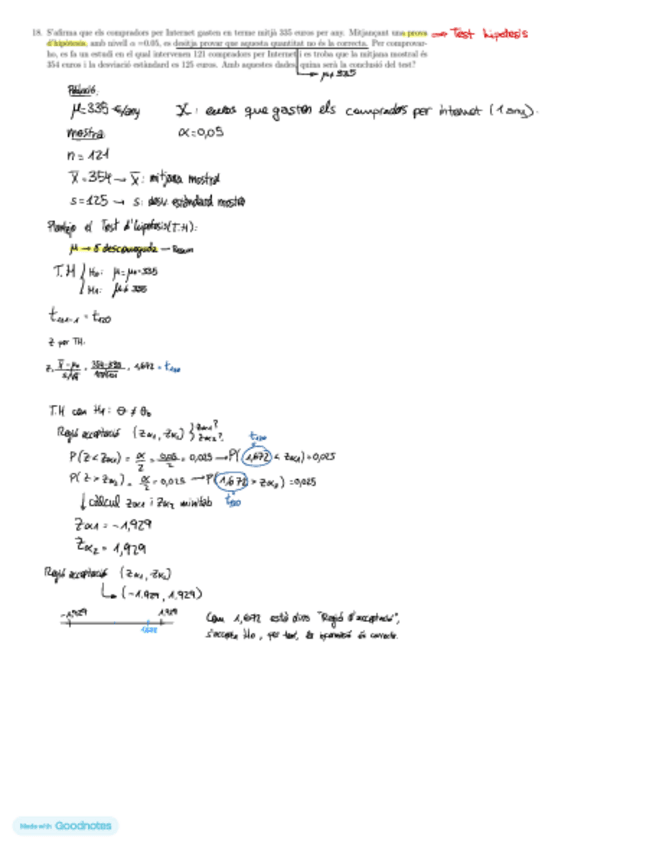 18. S'afirma que els compradors per Internet gasten en terme mitjà 335 euros per any. Mitjançant una prova → Test hipotesis
d'hipòtesis, amb nivell α =0.05, es desitja provar que aquesta quantitat no és la correcta. Per comprovar-
ho, es fa un estudi en el qual intervenen 121 compradors per Internet i es troba que la mitjana mostral és
354 euros i la desviació estàndard es 125 euros. Amb aquestes dades, quina serà la conclusió del test?
→ μ≠335
Població:
μ=335 €/any X: euros que gasten els compradors per internet (1 any).
mostra: α=0,05
n = 121
x̄ = 354 → x̄: mitjana mostral
s = 125 → s: desv. estàndard mostra
Plantejo el Test d'hipotesis (T.H):
μ → σ desconeguda →
T.H { H₀: μ=μ₀=335
H₁: μ≠335
= t₁₂₀
Z per TH.
= 1,672 = t₁₂₀
T.H com H₁: θ ≠ θ₀
Regió acceptació (Zα₁, Zα₂) } Zα₁? Zα₂?
t₁₂₀
P(Z < Zα₁) = α/2 = 0,05/2 = 0,025 → P(1,672 < Zα₁) = 0,025
P(Z > Zα₂) = α/2 = 0,025 → P(1,672 > Zα₂) = 0,025
↓ càlcul Zα₁ i Zα₂ minitab t₁₂₀
Zα₁ = -1,929
Zα₂ = 1,929
Regió acceptació (Zα₁, Zα₂)
↳ (-1,929, 1,929)
-1,929 1,929 Com 1,672 està dins "Regió d'acceptació",
1,672 s'accepta H₀, per tant, la és correcte.
Made with Goodnotes